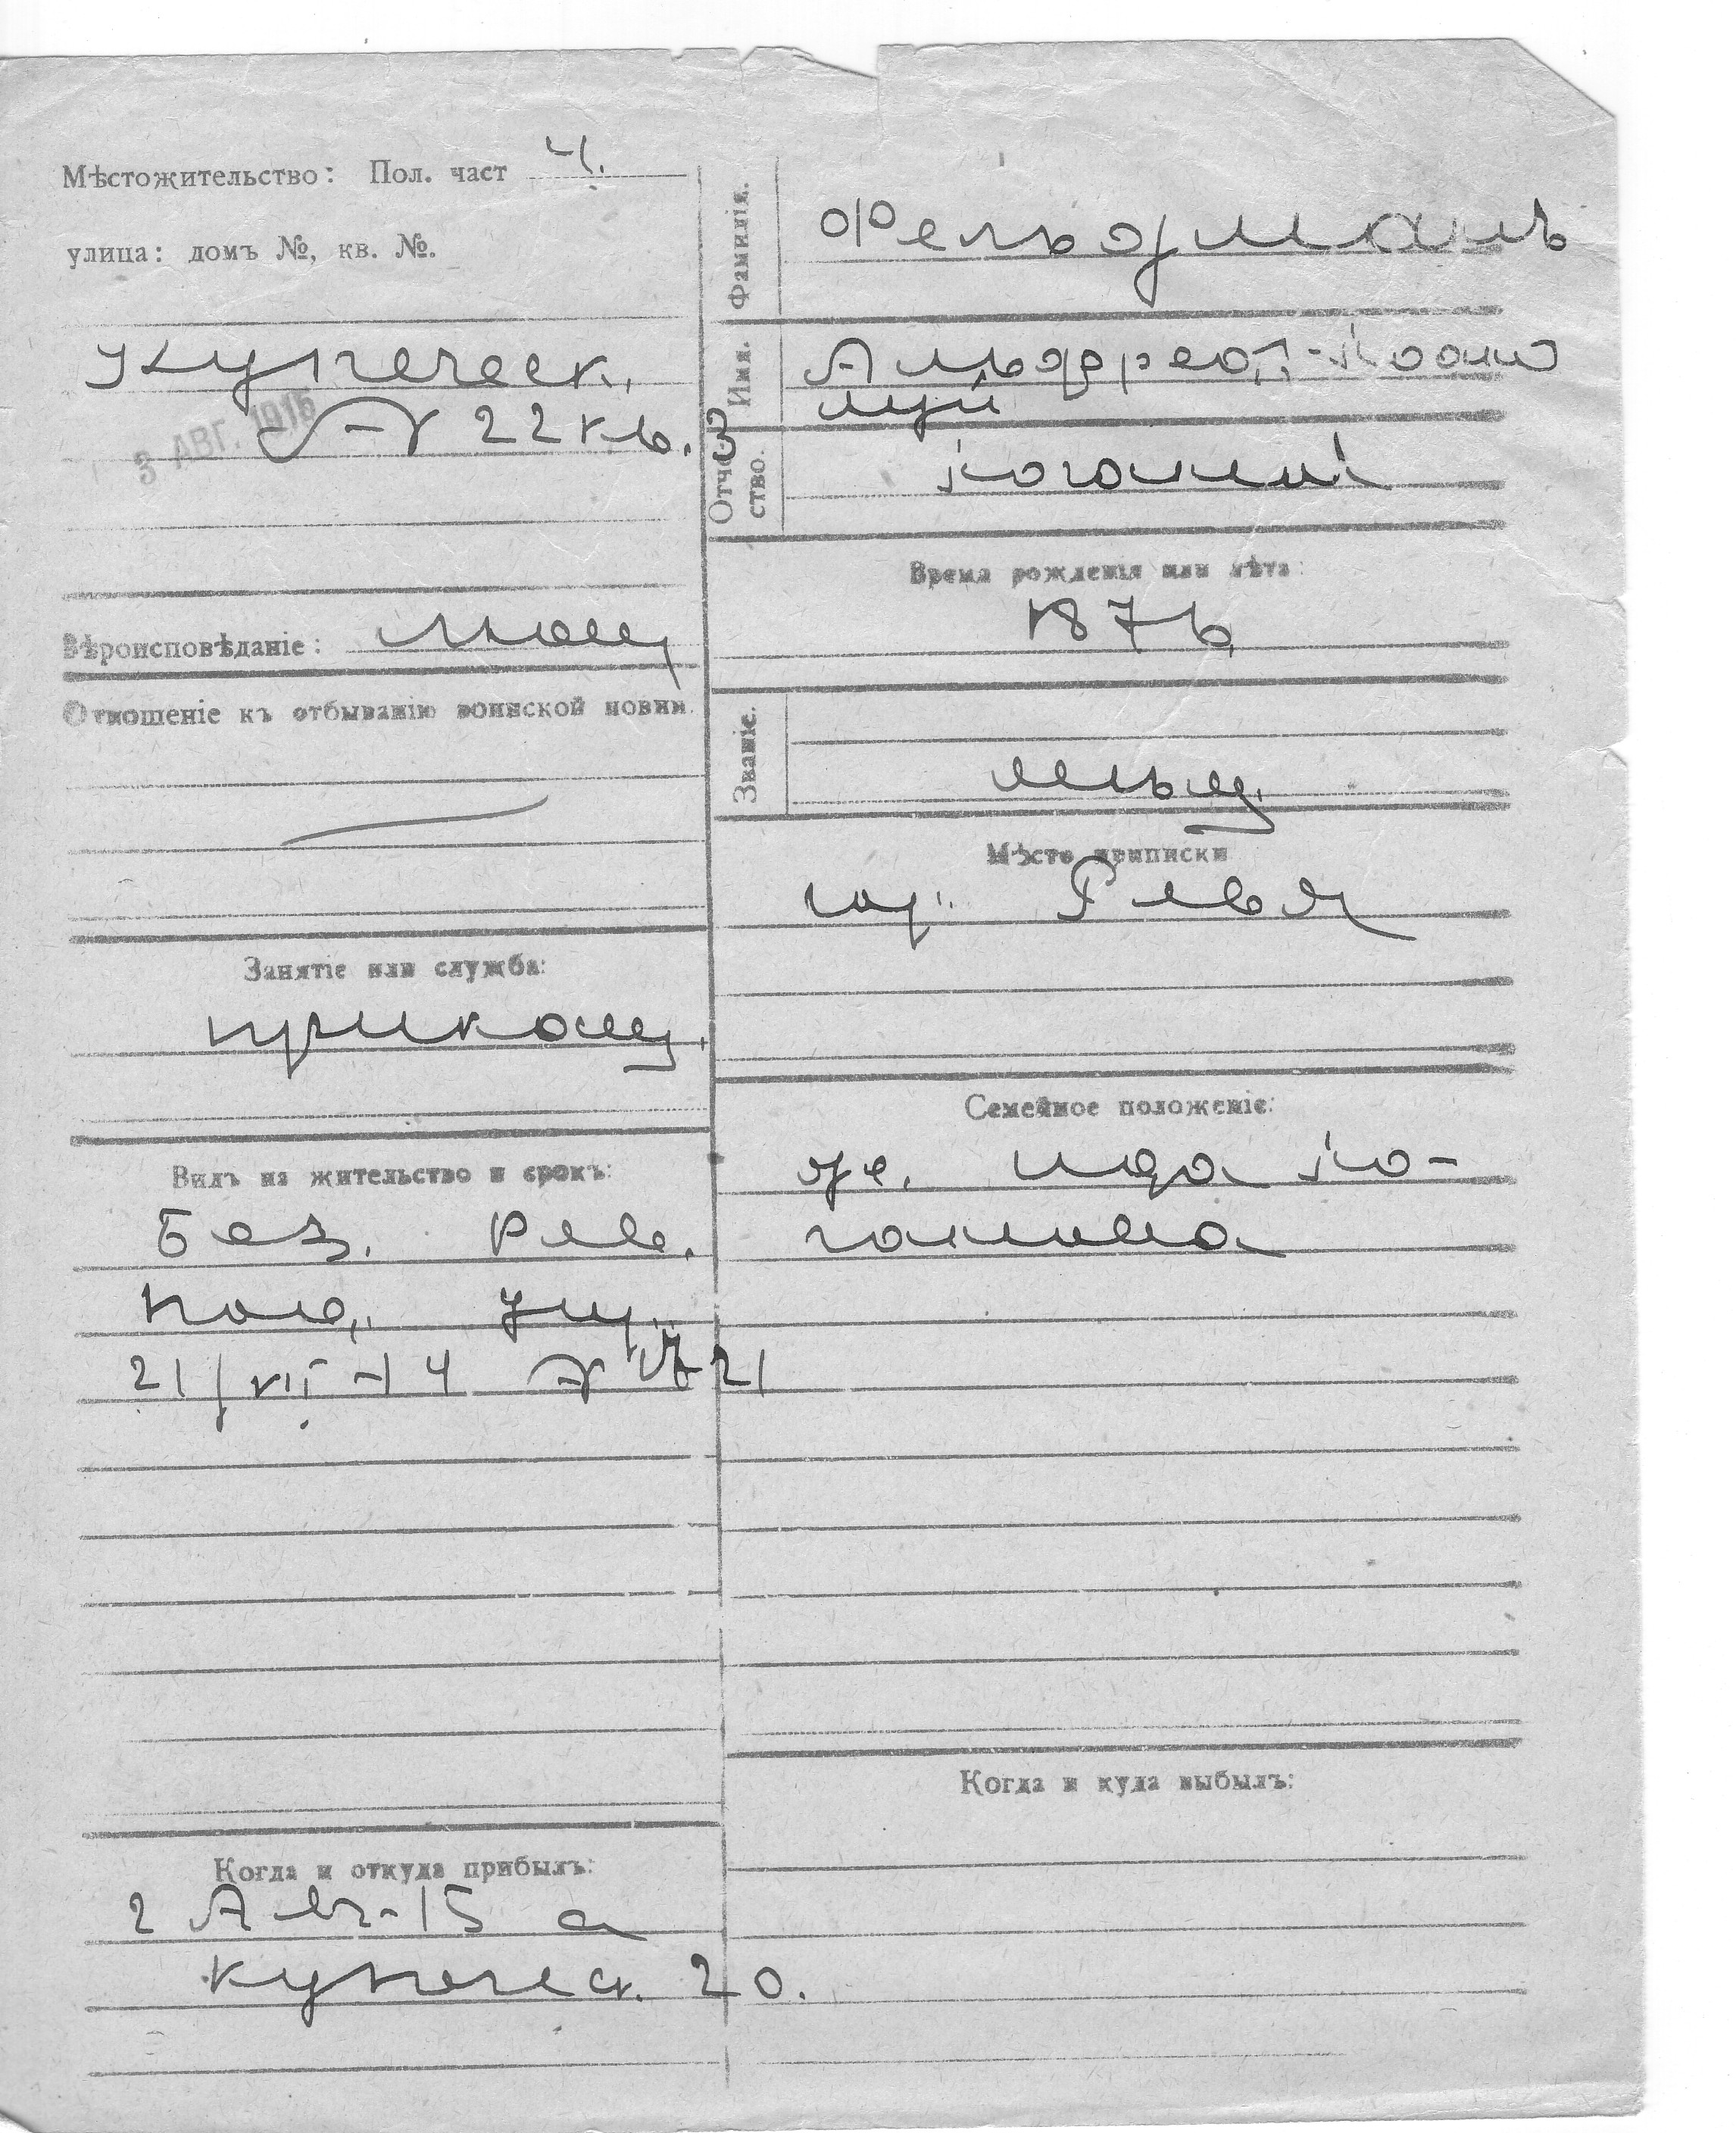 Мѣстожительство: Пол. част 4.
улица: домъ №, кв. №.
Купеческ.
№ 22 кв. 3
3 АВГ. 1915
Вѣроисповѣданіе: лют
Отношеніе къ отбыванію воинской повин.
Занятіе или служба:
приказч.
Видъ на жительство и срокъ:
Без. Рев.
пол. упр.
21/VII-14 №
Когда и откуда прибылъ:
2 Авг-15 с
Купеческ. 20.
Фамилія.
Фельдманъ
Имя.
Альфред-Іоан
Отчество.
Іоганн
Время рожденія или лѣта:
1876
Званіе.
Мѣсто приписки
гор. Ревел
Семейное положеніе:
ж. Ида Іо-
ганновна
Когда и куда выбылъ: